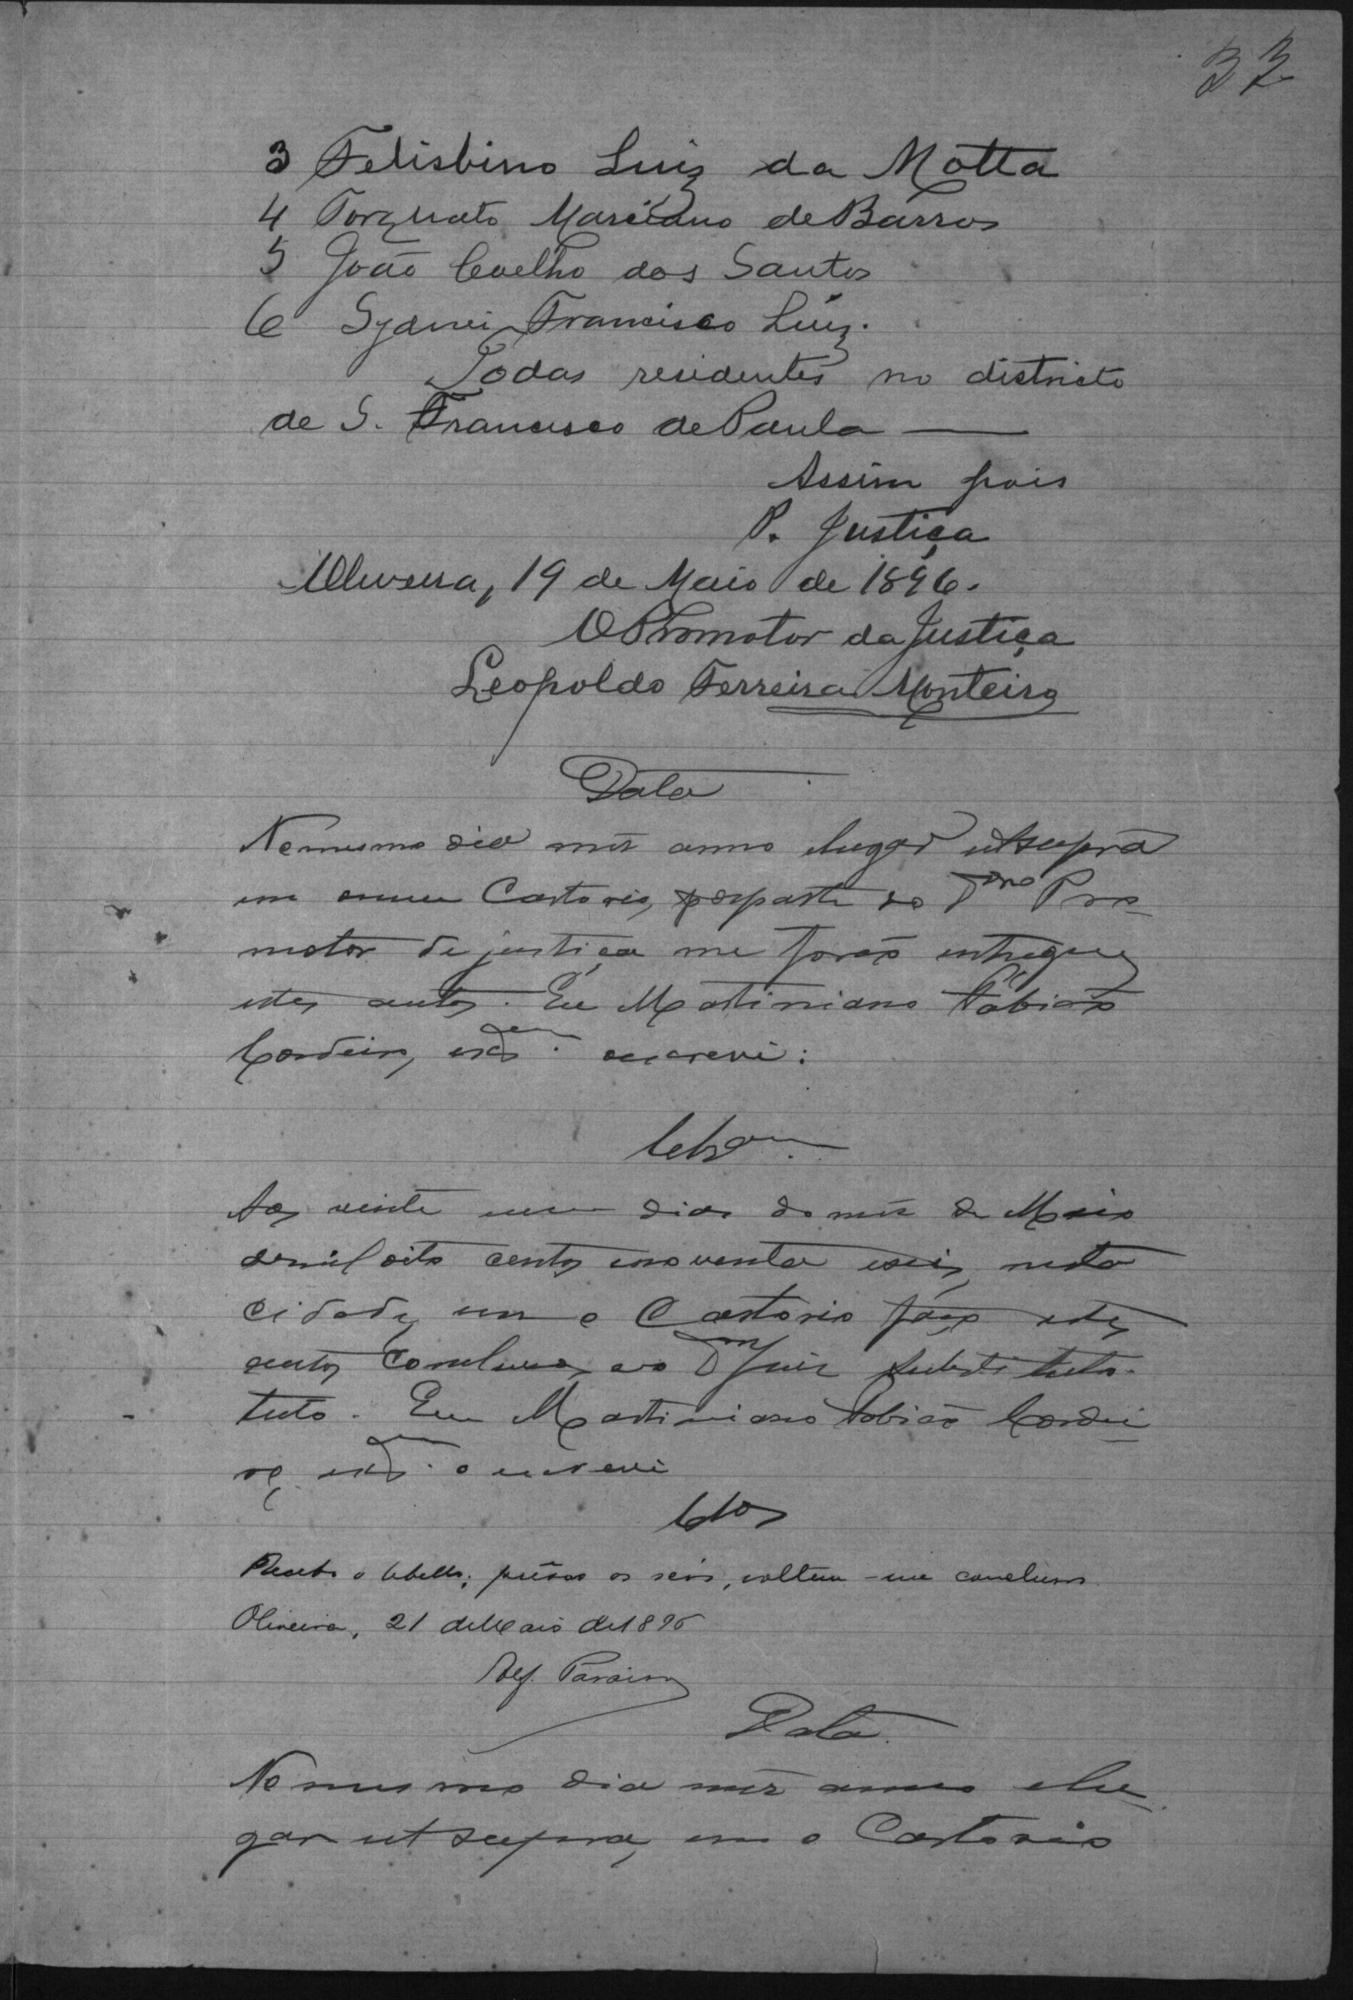 32
3 Felisbino Luiz da Motta
4 Torquato Marciano de Barros
5 João Coelho dos Santos
6 Sydnei Francisco Luiz.
Todas residentes no districto
de S. Francisco de Paula
Assim pois
P. Justiça
Oliveira, 19 de Maio de 1896.
O Promotor da Justiça
Leopoldo Ferreira Monteiro
Data
No mesmo dia mês anno e lugar ut supra
em meu Cartorio, por parte do Dr. Pro
motor de justiça me forão entregues
estes autos. Eu Martiniano Fabião
Cordeiro, escrevi:
Clsam.
Aos vinte um dias do mês de Maio
de mil oito centos e noventa e seis, nesta
cidade, em o Cartorio faço estes
autos conclusos ao Dr. Juiz substitu
tuto. Eu Martiniano Fabião Cordei
ro, o escrevi
Clos
Recebo o libello; prêsos os réos, voltem-me conclusos.
Oliveira, 21 de Maio de 1896
Data.
No mesmo dia mês anno e lu
gar ut supra, em o Cartorio